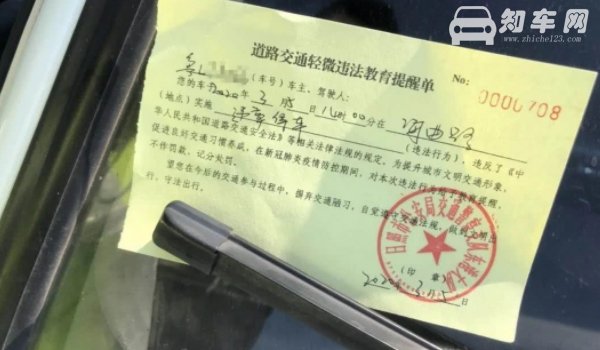 知车网
www.zhiche123.com
道路交通轻微违法教育提醒单
No:
0000708
鲁L (车号)车主、驾驶人:
您的车于2020年3月5日14时00分在 河曲路
(地点)实施 违章停车 (违法行为),违反了《中
华人民共和国道路交通安全法》等相关法律法规的规定,为提升城市文明交通形象,
促进良好交通习惯养成,在新冠肺炎疫情防控期间,对本次违法行为给予教育提醒,
不作罚款、记分处罚。
望您在今后的交通参与过程中,摒弃交通陋习,自觉遵守交通法规,做到文明出
行,守法出行。
日照市公安局交通警察支队东港大队
(印 章)
2020年3月5日